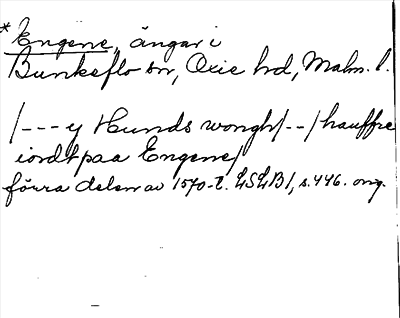 * Engene, ängar i
Bunkeflo sn, Oxie hd, Malm. l.
/--- y Hunds wongh/--/hauffre
iordt paa Engene/
förra delen av 1570-t. LSLB 1, s. 446. orig.